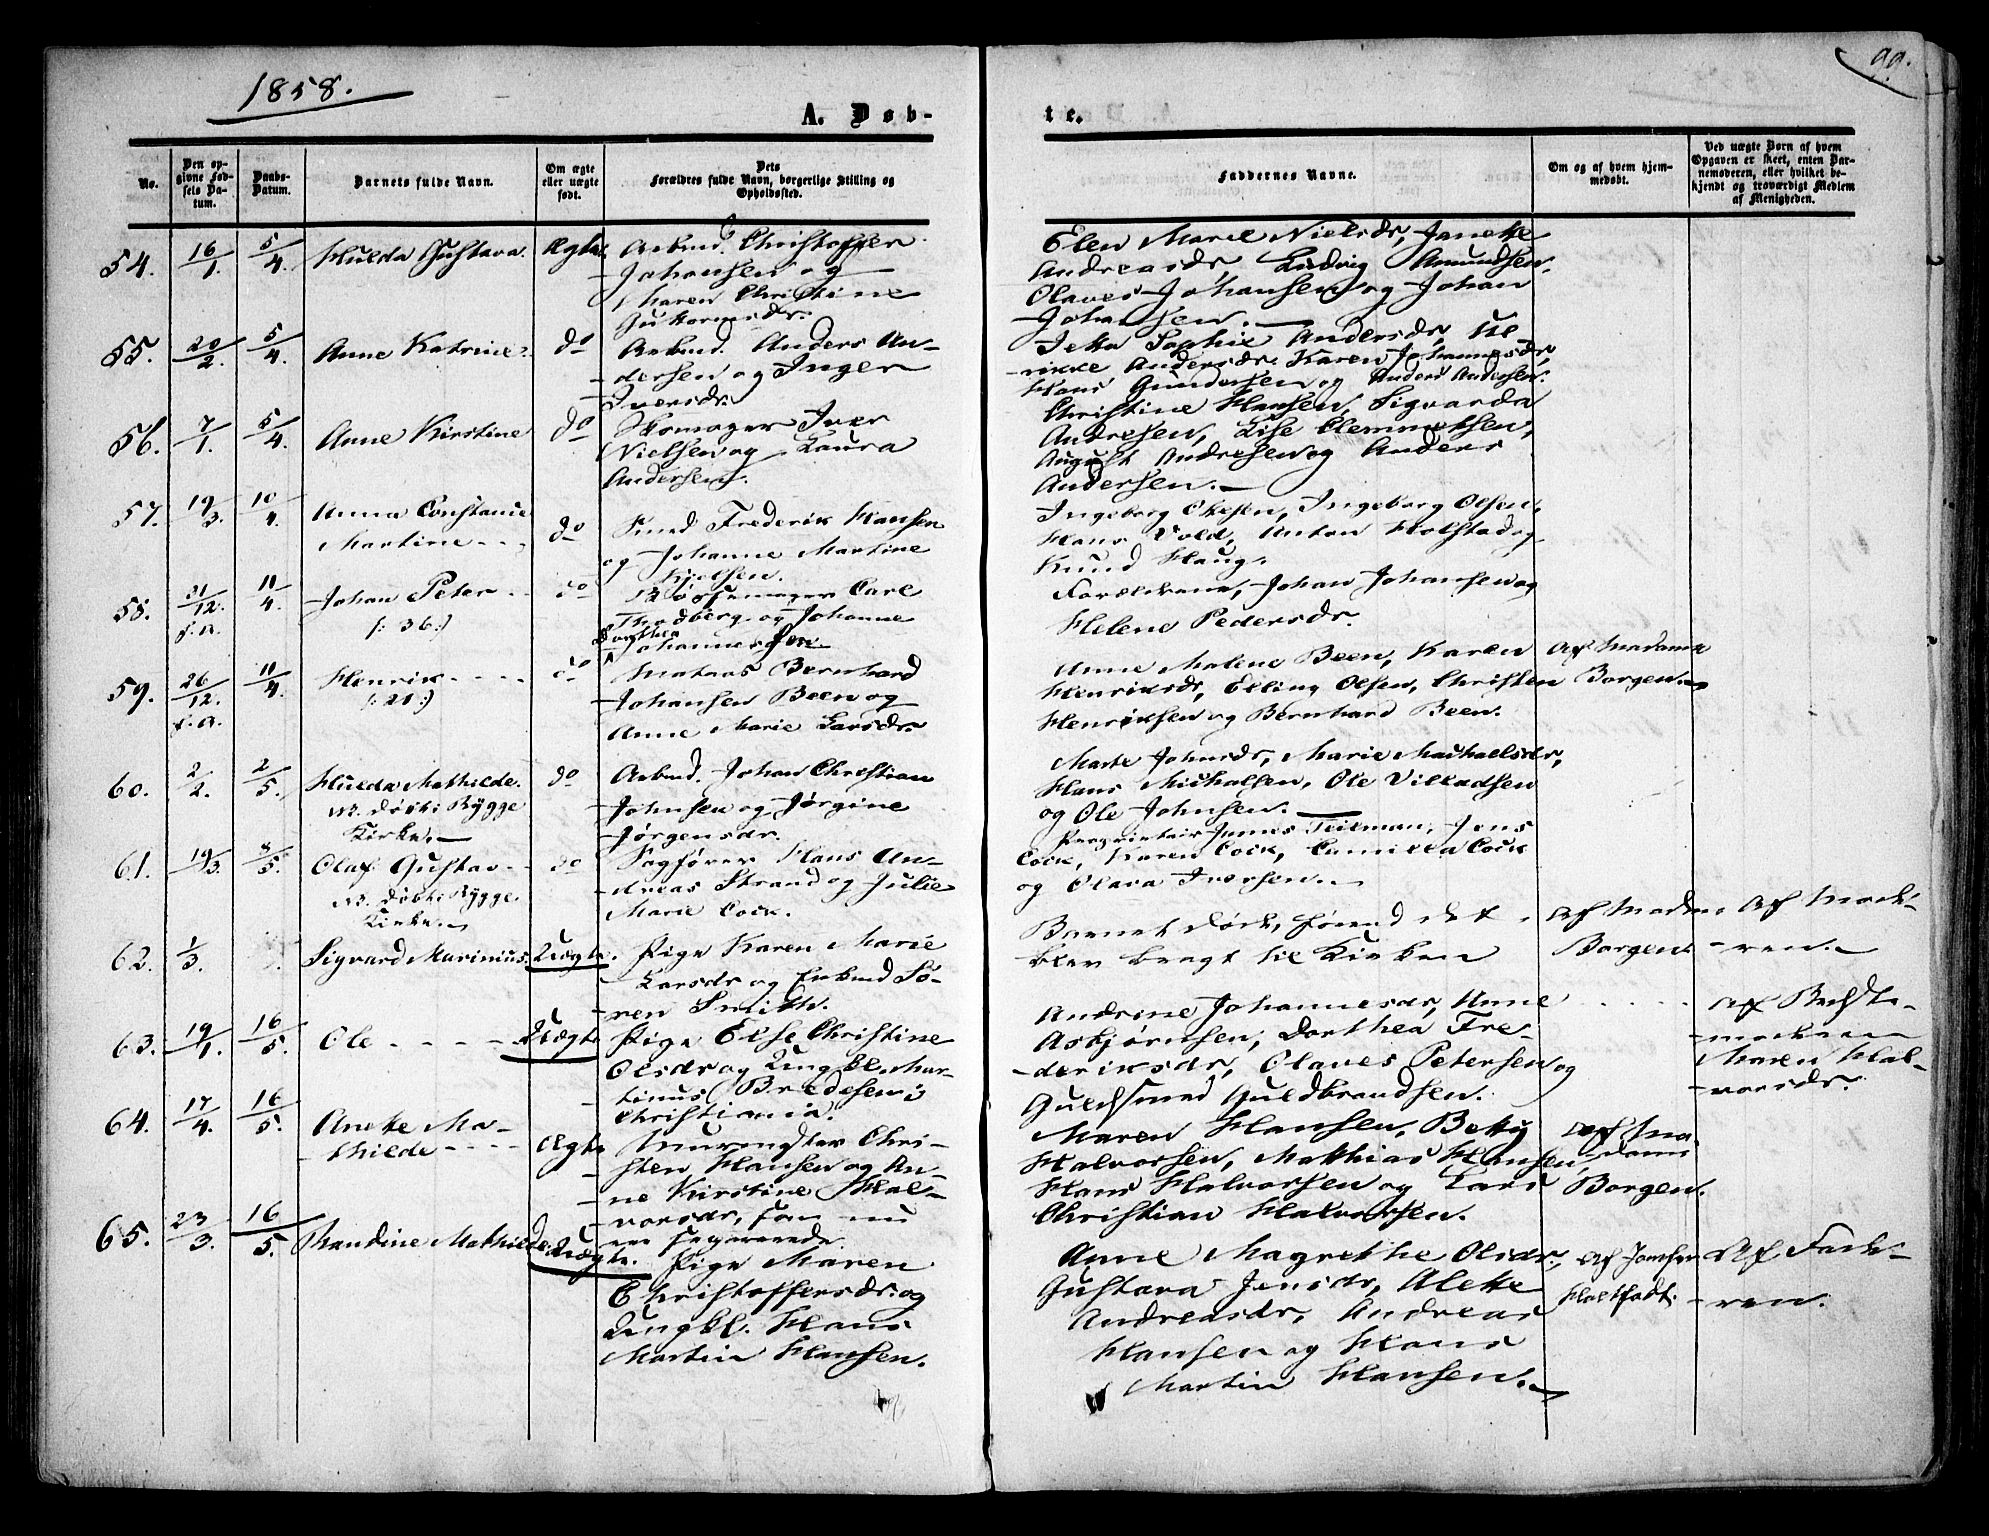 1858.
99.
A. Døb-
te.
No.
Den op-
givne Fød-
sels Da-
tum.
Daabs-
Datum.
Barnets fulde Navn.
Om ægte
eller uægte
født.
Dets
Forældres fulde Navn, borgerlige Stilling og
Opholdssted.
Faddernes Navne.
Om og af hvem hjem-
medøbt.
Ved uægte Børn af hvem
Opgaven er skeet, enten Bar-
nemoderen, eller hvilket be-
kjendt og troværdigt Medlem
af Menigheden.
54. 16/1. 5/4. Hulda Gustava. Ægte. Arbmd. Christoffer
Johansen og
Maren Christine
Guttormsdr.
Elen Marie Nielsdr, Janette
Andreasdr, Ludvig Amundsen,
Olaves Johansen og Johan
Johansen.
55. 20/2. 5/4. Anne Katrine. do Arbmd. Anders An-
dersen og Inger
Iversdr.
Jetta Sophie Andersdr, He
rikke Andersdr. Karen Johannesdr,
Hans Gundersen og Anders Andersen.
56. 7/1. 5/4. Anne Kirstine do Skomager Iver
Nielsen og Laura
Andersen.
Christine Hansen, Sigvarda
Andresen, Lise Clemmetsen,
August Andresen og Anders
Andersen.
57. 19/3. 10/4. Anna Constance
Martine do Smed Frederik Hansen
og Johanne Martine
Kjølsen.
Ingeborg Olsen, Ingeborg Olsen,
Hans Vold, Anton Holstad og
Knud Haug.
58. 21/12. f.A. 11/4. Johan Peter
/: 36:/ do Bøssemager Carl
Thodberg og Johanne
Dorthea
Johannessen
Forældrene, Johan Johansen og
Helene Pedersdr.
59. 26/12. f.A. 11/4. Henrik
/: 21:/ do Matros Bernhard
Johansen Been og
Anne Marie Larsdr.
Anne Malene Been, Karen
Henriksdr, Elling Olsen, Christen
Henriksen og Bernhard Been.
Af Madame
Borgen.
60. 2/2. 2/5. Hulda Mathilde.
NB. Døbt i Rygge
Kirke. do Arbmd. Johan Christian
Johnsen og Jørgine
Jørgensdr.
Marte Johnsdr, Marie Machaelsdr,
Hans Michalsen, Ole Villadsen
og Ole Johnsen.
61. 19/3. 8/5. Olaf Gustav
NB. Døbt i Rygge
Kirke. do Sagfører Hans An-
dreas Strand og Julie
Marie Cock.
Proprietair James Teilman, Jens
Cock, Karen Cock, Camilla Cock
og Clara Iversen.
62. 1/3. Sigvard Marinius. Uægte. Pige Karen Marie
Larsdr og Enkmd Sø-
ren Smith.
Barnet døde, førend det
blev bragt til Kirken
Af Madm
Borgen
Af Mod-
ren.
63. 19/1. 16/5. Ole Uægte. Pige Else Christine
Olsdr og Ungkl. Mar-
tinus Bredesen i
Christiania.
Andrine Johannesdr, Anne
Asbjørnsen, Dorthea Fre-
deriksdr, Olaves Petersen og
Guldsmed Guldbrandsen.
Af Bedste-
moderen
Maren Hal-
vorsdr.
64. 17/4. 16/5. Anette Ma-
thilde Ægte Murmester Chri-
sten Hansen og An-
ne Kirstine Hal-
vorsdr, som nu
ere separerede
Maren Hansen, Betty
Halvorsen, Matthias Hansen,
Hans Halvorsen og Lars
Christian Halvorsen.
Af Ma-
dame
Borgen.
65. 23/3. 16/5. Randine Mathilde Uægte. Pige Maren
Christoffersdr. og
Ungkl. Hans
Martin Hansen.
Anne Magrethe Olsdr.,
Gustava Jensdr, Alette
Andreasdr, Andreas
Hansen og Hans
Martin Hansen.
Af Jomfru
Af Fad-
ren.